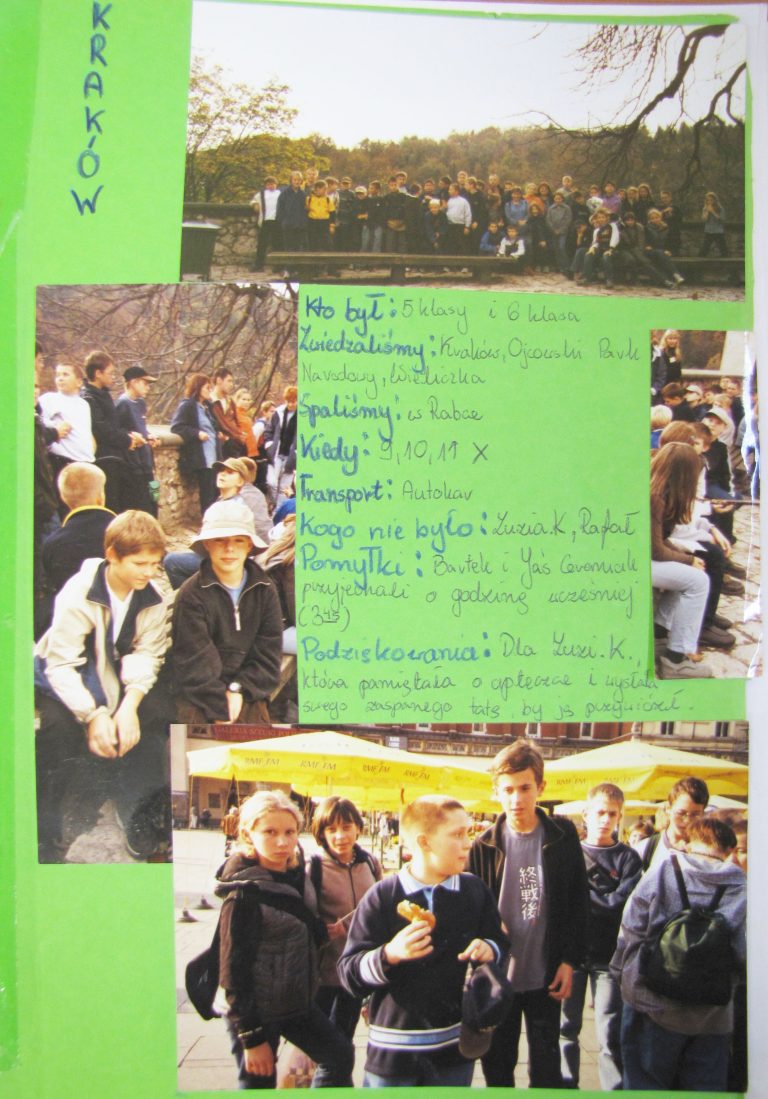 KRAKÓW
Kto był: 5 klasy i 6 klasa
Zwiedzaliśmy: Kraków, Ojcowski Park
Narodowy, Wieliczka
Spaliśmy: w Rabce
Kiedy: 9, 10, 11 X
Transport: Autokar
Kogo nie było: Zuzia.K, Rafał
Pomyłki: Bartek i Jaś Czerniak
przyjechali o godzinę wcześniej
(3 45)
Podziękowania: Dla Zuzi.K.,
która pamiętała o apteczce i wysłała
swego zaspanego tatę, by ją przywiózł.
RMF FM
RMF FM
RMF FM
RMF FM
終戦後